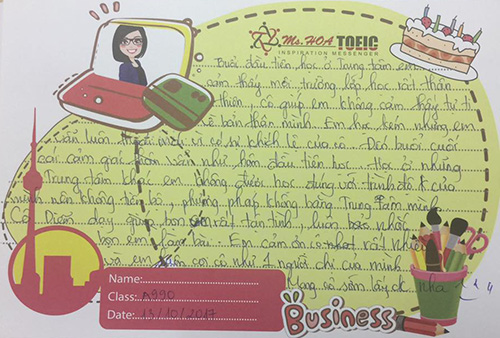 Ms. HOA TOEIC
INSPIRATION MESSENGER
Buổi đầu tiên học ở Trung tâm em
cảm thấy môi trường lớp học rất thân
thiện. cô giúp em không cảm thấy tự ti
về bản thân mình. Em học kém nhưng em
vẫn luôn thoải mái vì có sự khích lệ của cô. Đến buổi cuối
cái cảm giác vẫn như lần đầu tiên học. Học ở những
Trung tâm khác em không được học đúng với trình độ của
mình nên không tiến bộ, phương pháp không bằng Trung tâm mình.
Cô dạy bọn em rất tận tình, luôn nhắc
bọn em làm bài. Em cảm ơn cô rất nhiều
và em coi cô như 1 người chị của mình
cô sớm lấy ck nha
Name:
Class: A990
Date: 13/10/2017
BUSINESS